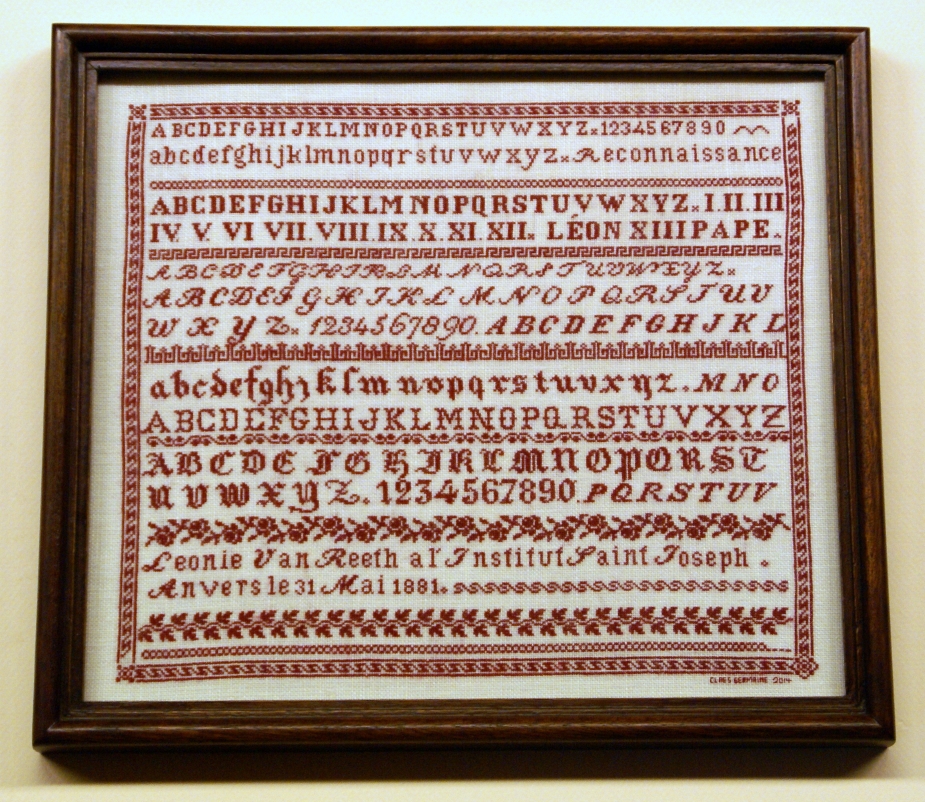 ABCDEFGHIJKLMNOPQRSTUVWXYZ×1234567890
abcdefghijklmnopqrstuvwxyz×Reconnaissance
ABCDEFGHIJKLMNOPQRSTUVWXYZ×I.II.III
IV.V.VI VII.VIII.IX.X.XI.XII× LÉON XIII PAPE×
ABCDEFGHIKLMNQRSTUVWXYZ×
ABCDEFGHIKLMNOPQRSTUV
WXYZ×1234567890.ABCDEFGHJKL
abcdefghijklmnopqrstuvxyz.MNO
ABCDEFGHIJKLMNOPQRSTUVXYZ
ABCDEFGHIKLMNOPQRST
UVWXYZ.1234567890.PQRSTUV
Leonie Van Reeth a l'Institut Saint Joseph .
Anvers le 31 Mai 1881.
CLAES GERMAINE 2014